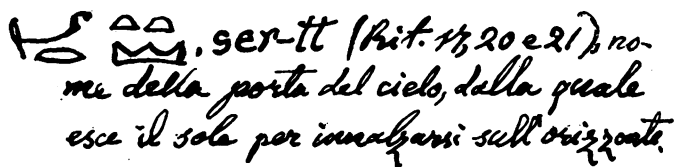 ser-tt (Rit. 17, 20 e 21), no-
me della porta del cielo, dalla quale
esce il sole per innalzarsi sull'orizzonte.